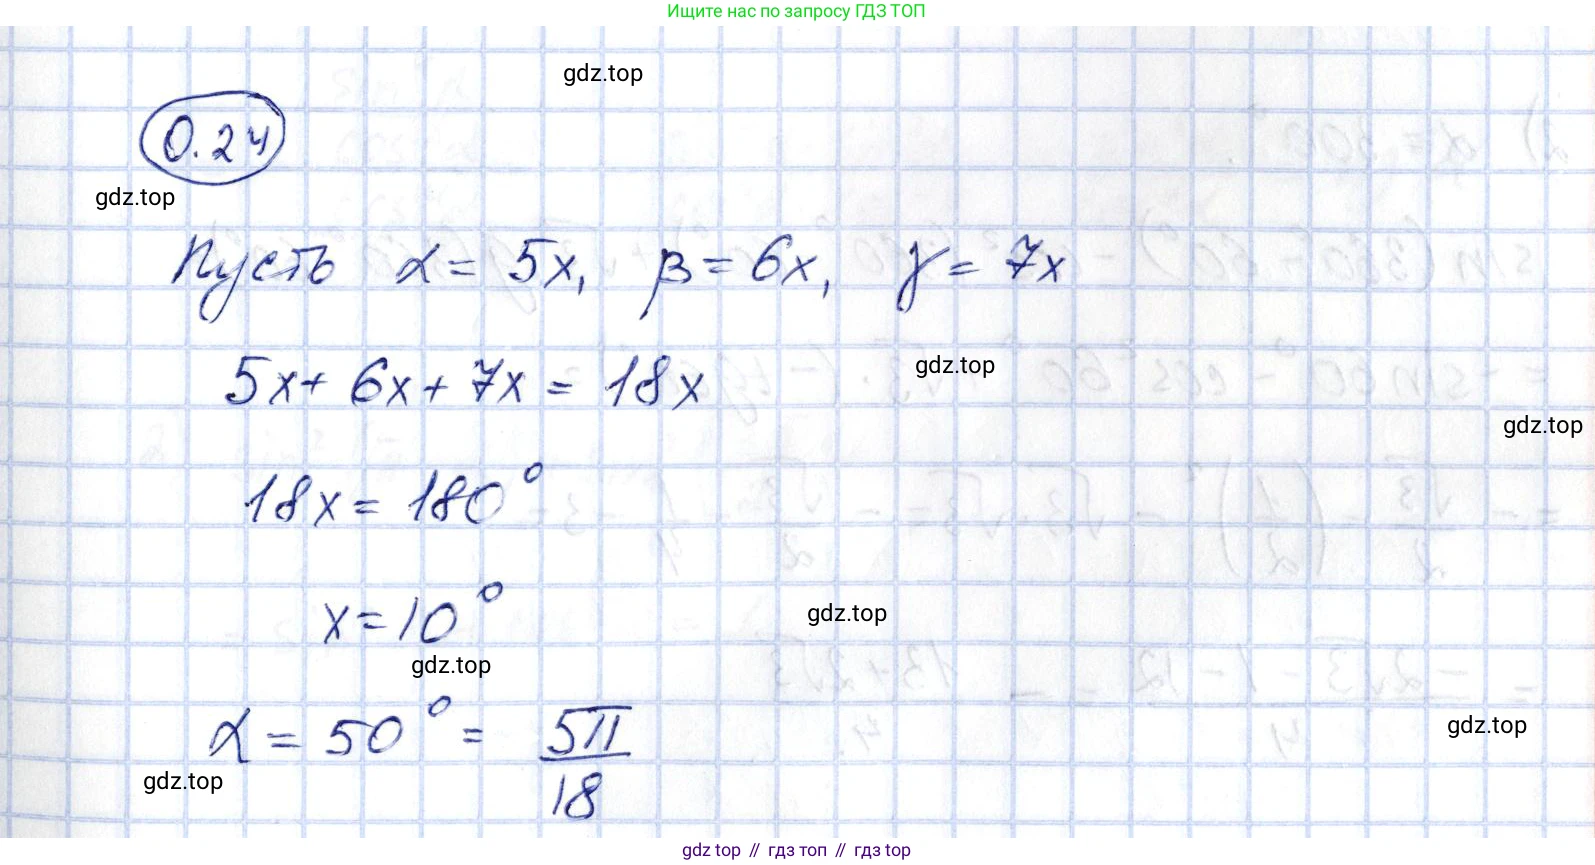 Ищите нас по запросу ГДЗ ТОП
gdz.top
0.24
gdz.top
Пусть α = 5x, β = 6x, γ = 7x
gdz.top
5x + 6x + 7x = 18x
gdz.top
18x = 180°
x = 10°
gdz.top
gdz.top
α = 50° = 5π/18
gdz.top
gdz.top
gdz.top // гдз топ // гдз.top